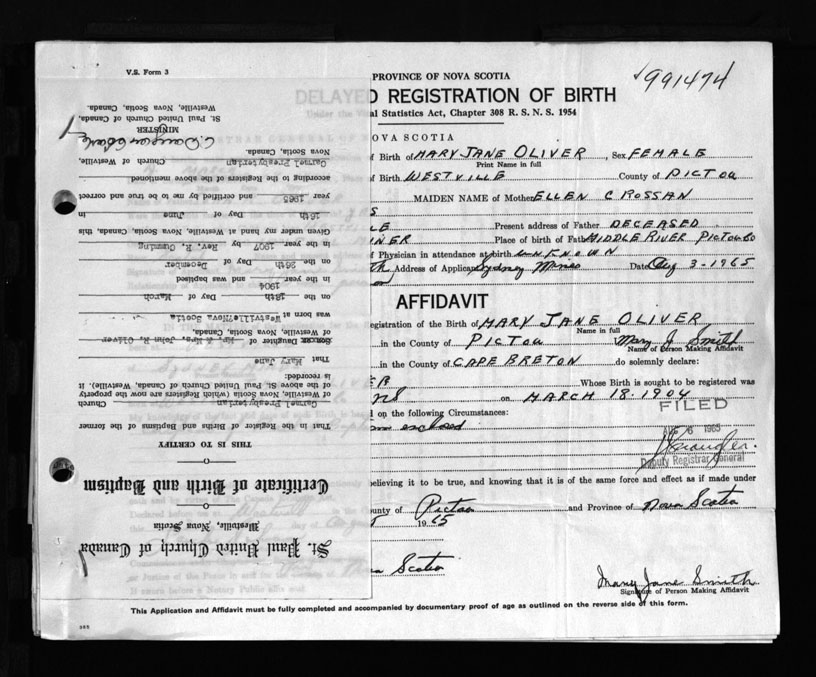 V.S. Form 3
PROVINCE OF NOVA SCOTIA
√991474
DELAYED REGISTRATION OF BIRTH
Under the Vital Statistics Act, Chapter 308 R. S. N. S. 1954
NOVA SCOTIA
of Birth of MARY JANE OLIVER, Sex FEMALE
Print Name in full
of Birth WESTVILLE County of PICTOU
MAIDEN NAME of Mother ELLEN CROSSAN
Present address of Father DECEASED
Place of birth of Father MIDDLE RIVER PICTOU CO
of Physician in attendance at birth UNKNOWN
Address of Applicant Sydney Mines Date Aug 3-1965
AFFIDAVIT
Registration of the Birth of MARY JANE OLIVER
Name in full
in the County of PICTOU Mary J Smith
Name of Person Making Affidavit
in the County of CAPE BRETON do solemnly declare:
Whose Birth is sought to be registered was
on MARCH 18-1904
FILED
on the following Circumstances:
enclosed
6 1965
Deputy Registrar General
believing it to be true, and knowing that it is of the same force and effect as if made under
County of Pictou and Province of Nova Scotia
1965
Scotia
Mary Jane Smith
Signature of Person Making Affidavit
This Application and Affidavit must be fully completed and accompanied by documentary proof of age as outlined on the reverse side of this form.
St. Paul United Church of Canada
Westville, Nova Scotia
Certificate of Birth and Baptism
THIS IS TO CERTIFY
That in the Register of Births and Baptisms of the former
Carmel Presbyterian Church
of Westville, Nova Scotia (which Registers are now the property
of the above St. Paul United Church of Canada, Westville), it
is recorded:
That Mary Jane
Daughter of Mr. & Mrs. John R. Oliver
of Westville, Nova Scotia, Canada,
was born at Westville, Nova Scotia
on the 18th Day of March
in the year 1904 and was baptised
on the 26th Day of December
in the year 1907 by Rev. R. Cumming
Given under my hand at Westville, Nova Scotia, Canada, this
16th Day of June in
year 1965 and certified by me to be true and correct
according to the Registers of the above mentioned
Carmel Presbyterian Church of Westville,
Nova Scotia, Canada.
MINISTER
St. Paul United Church of Canada,
Westville, Nova Scotia, Canada.